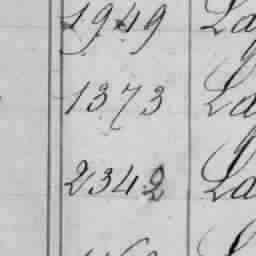 1949 La
1373 La
2342 La